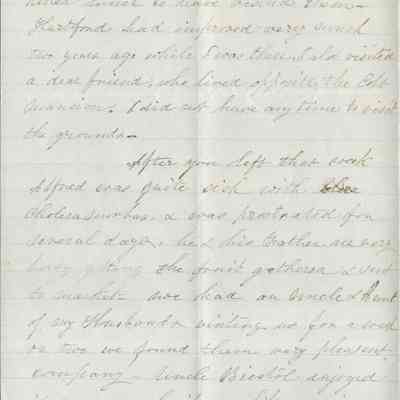 Hartford had improved very much
two years ago while I was there. I also visited
a dear friend, who lived opposite, the Colt
Mansion. I did not have any time to visit
the grounds—
After you left that week
Alfred was quite sick with
Cholera Morbus, & was prostrated for
several days. he & his Father are very
busy getting the fruit gathered & sent
to market. we had an Uncle & Aunt
of my Husbands visiting us for a week
or two we found them very pleasant
company— Uncle Bristol enjoyed